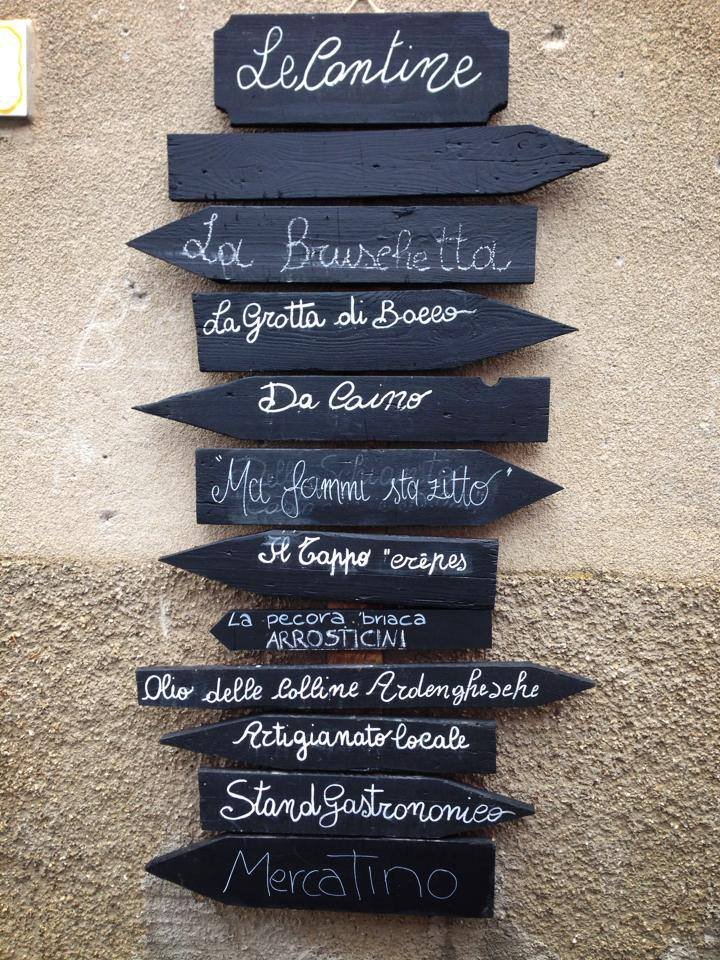 Le Cantine
La Bruschetta
La Grotta di Bacco
Da Caino
"Ma fammi sta zitto"
Il Tappo "crêpes
La pecora 'briaca
ARROSTICINI
Olio delle Colline Ardenghesche
Artigianato locale
Stand Gastrononico
Mercatino